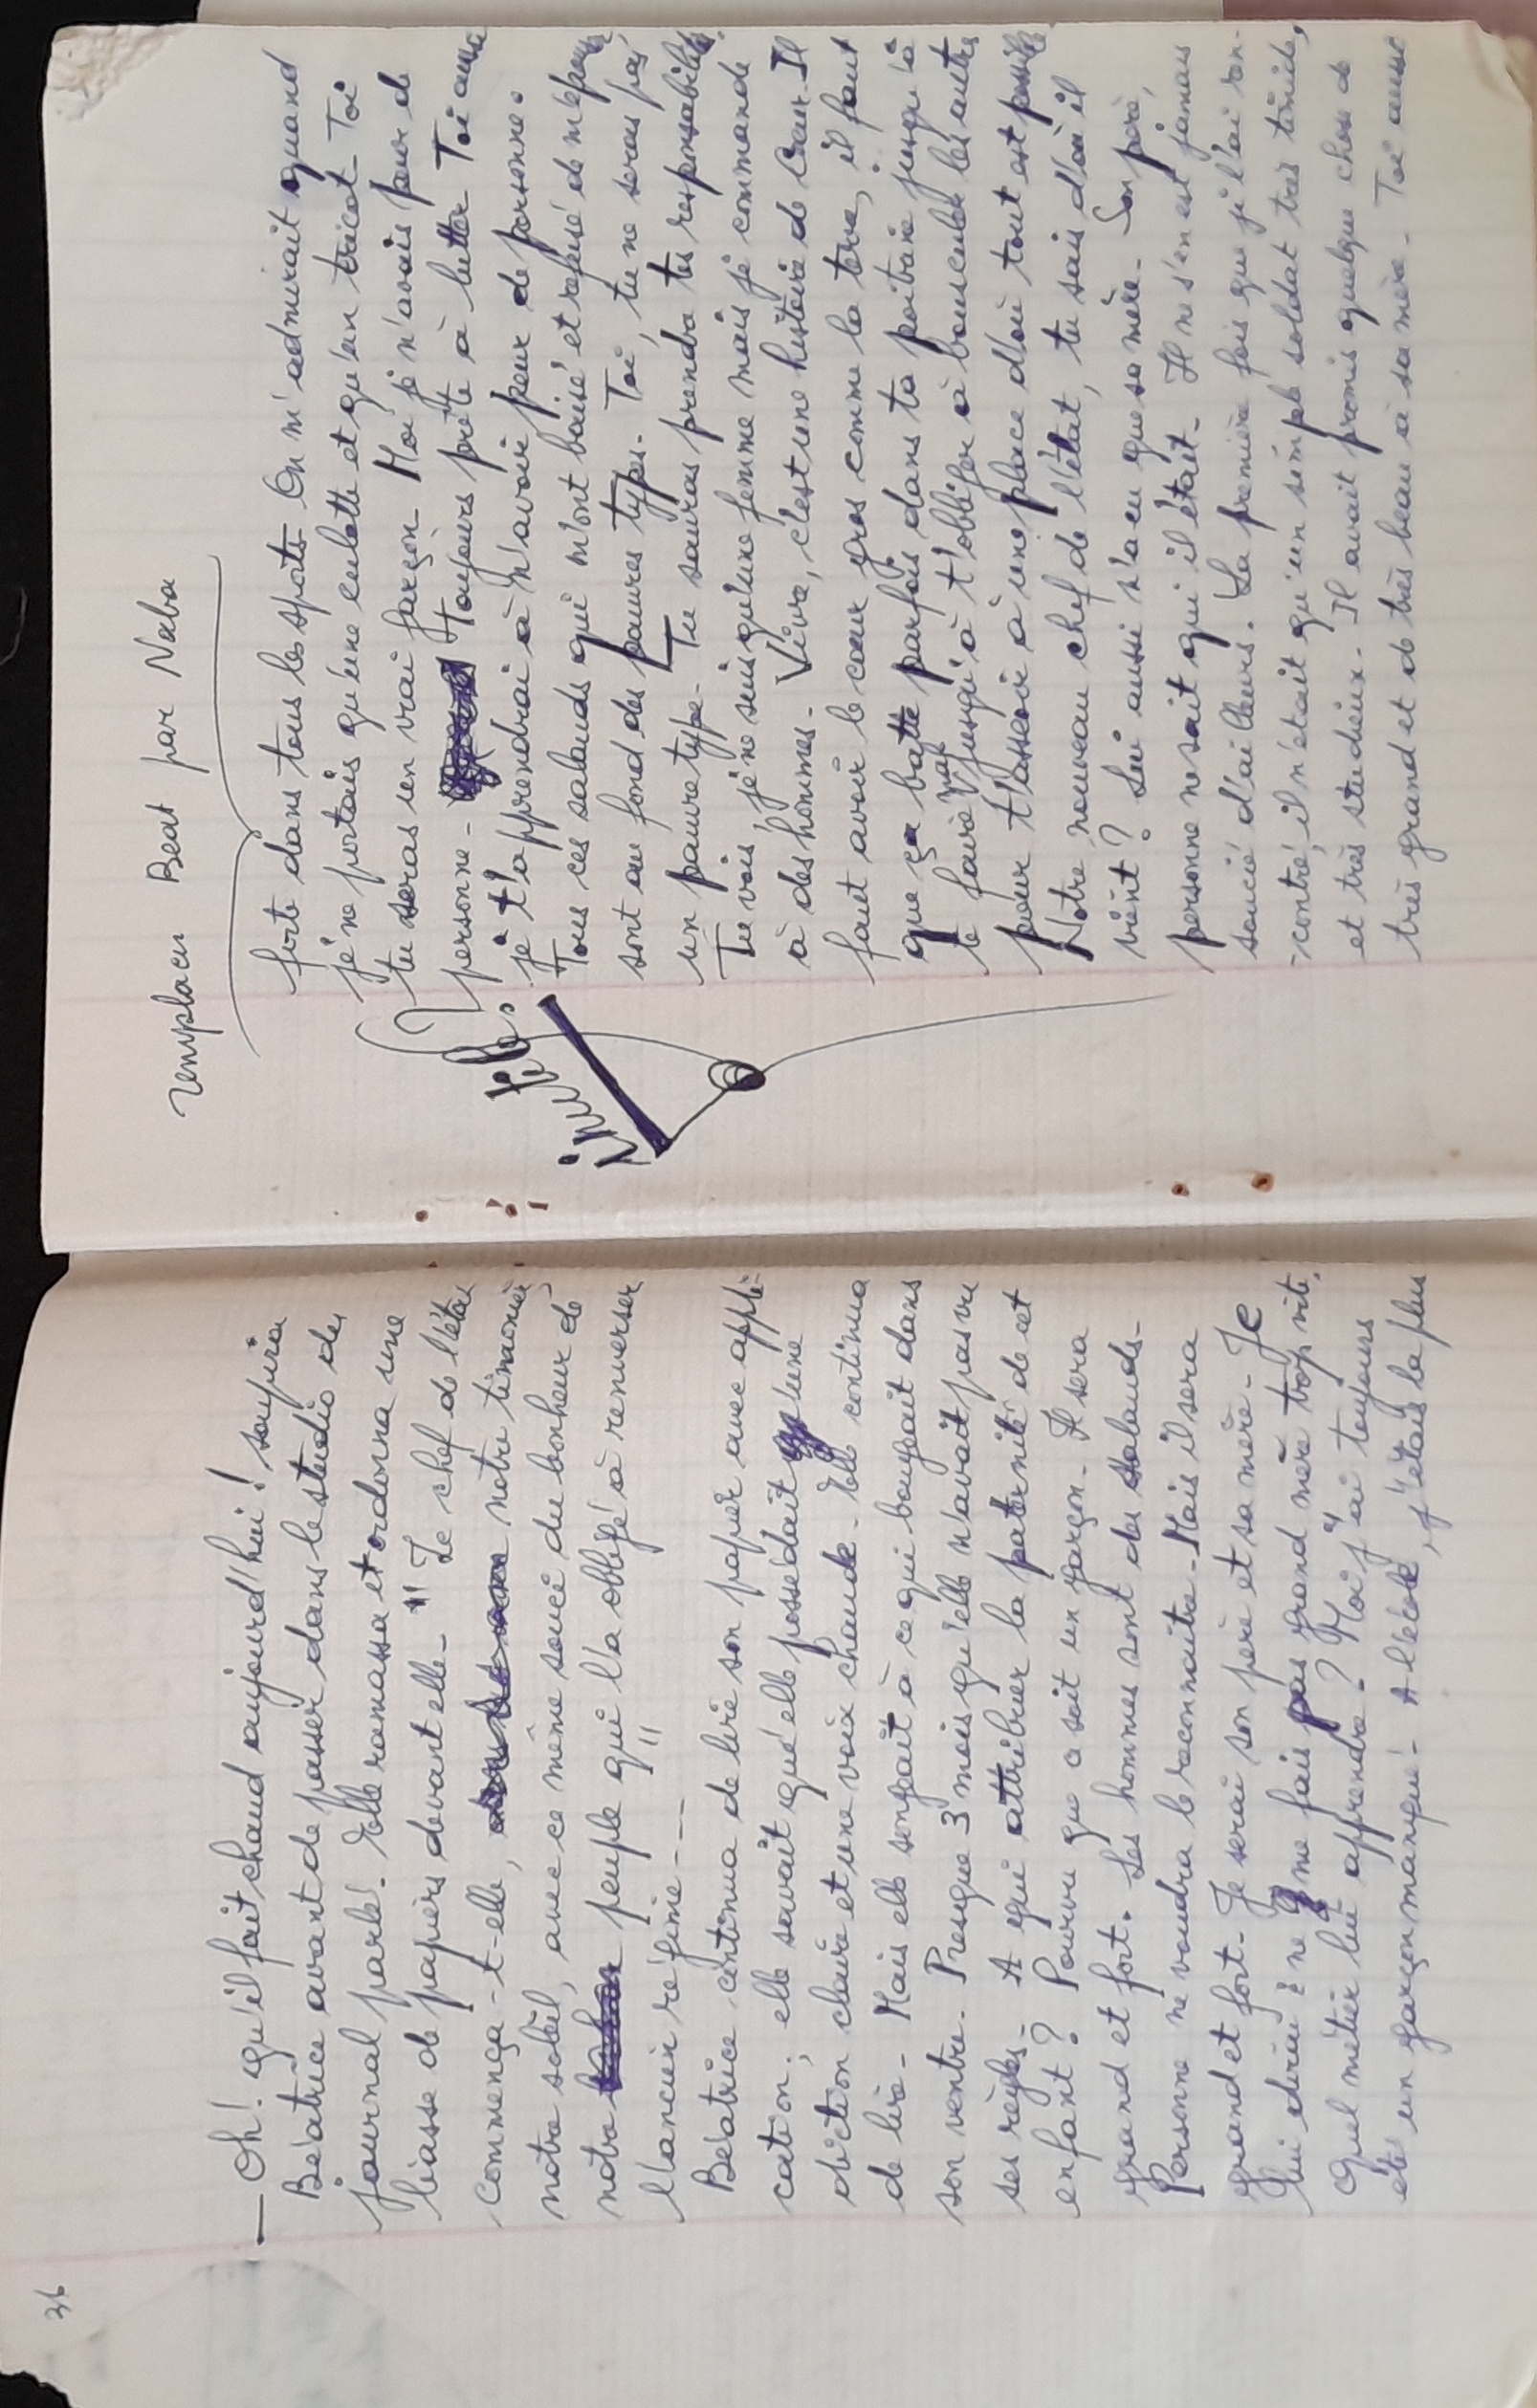 36
— Oh! qu'il fait chaud aujourd'hui! soupira
Béatrice avant de passer dans le studio du
journal parlé. Elle ramassa et ordonna une
liasse de papiers devant elle. " Le chef de l'état
commença-t-elle, notre timonier,
notre soleil, avec ce même souci du bonheur de
notre peuple qui l'a obligé à renverser
l'ancien régime --- "
Béatrice continua de lire son papier avec appli-
cation; elle savait qu'elle possédait une
diction claire et une voix chaude. Elle continua
de lire. Mais elle songeait à ce qui bougeait dans
son ventre. Presque 3 mois qu'elle n'avait pas vu
ses règles. A qui attribuer la paternité de cet
enfant? Pourvu que ce soit un garçon. Il sera
grand et fort. Les hommes sont des salauds.
Personne ne voudra le reconnaître. Mais il sera
grand et fort. Je serai son père et sa mère. Je
lui dirai: ne me fais pas grand mère trop vite.
Quel métier lui apprendre? Moi j'ai toujours
été un garçon manqué. A l'école, j'étais la plus
remplacer Beat par Naba
forte dans tous les sports. On m'admirait quand
je ne portais qu'une culotte et qu'un tricot. Toi
tu seras un vrai garçon. Moi je n'avais peur de
personne. Toujours prête à lutter. Toi aussi
je t'apprendrai à n'avoir peur de personne.
Tous ces salauds qui m'ont baisé et refusé de m'épouser
sont au fond des pauvres types. Toi, tu ne seras pas
un pauvre type. Tu sauras prendre tes responsabilités.
Tu vois, je ne suis qu'une femme mais je commande
à des hommes. Vivre, c'est une histoire de Cœur. Il
faut avoir le cœur gros comme la terre, il faut
que ça batte parfois dans ta poitrine jusqu'à
te faire mal jusqu'à t'obliger à bousculer les autres
pour t'asseoir à une place d'où tout est possible
Notre nouveau chef de l'état, tu sais d'où il
vient? Lui aussi n'a eu que sa mère. Son père,
personne ne sait qui il était. Il ne s'en est jamais
soucié d'ailleurs. La première fois que je l'ai ren-
-contré, il n'était qu'un simple soldat très timide,
et très studieux. Il avait promis quelque chose de
très grand et de très beau à sa mère. Toi aussi